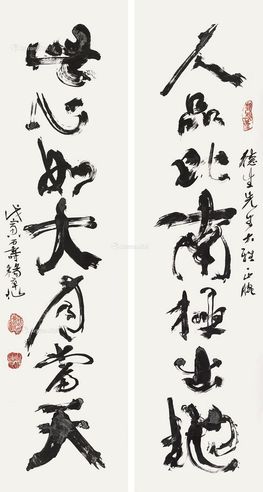 人品比南極出地
德生先生大雅正腕
心如大月當天
戊寅百壽楊草仙